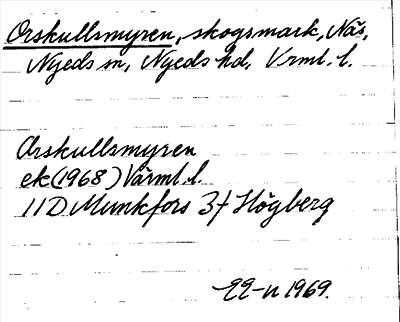 Orskullsmyren, skogsmark, Näs,
Nyeds sn, Nyeds hd, Vrml. l.
Orskullsmyren
ek (1968) Värml. l.
11D Munkfors 3f Högberg
EE-n 1969.